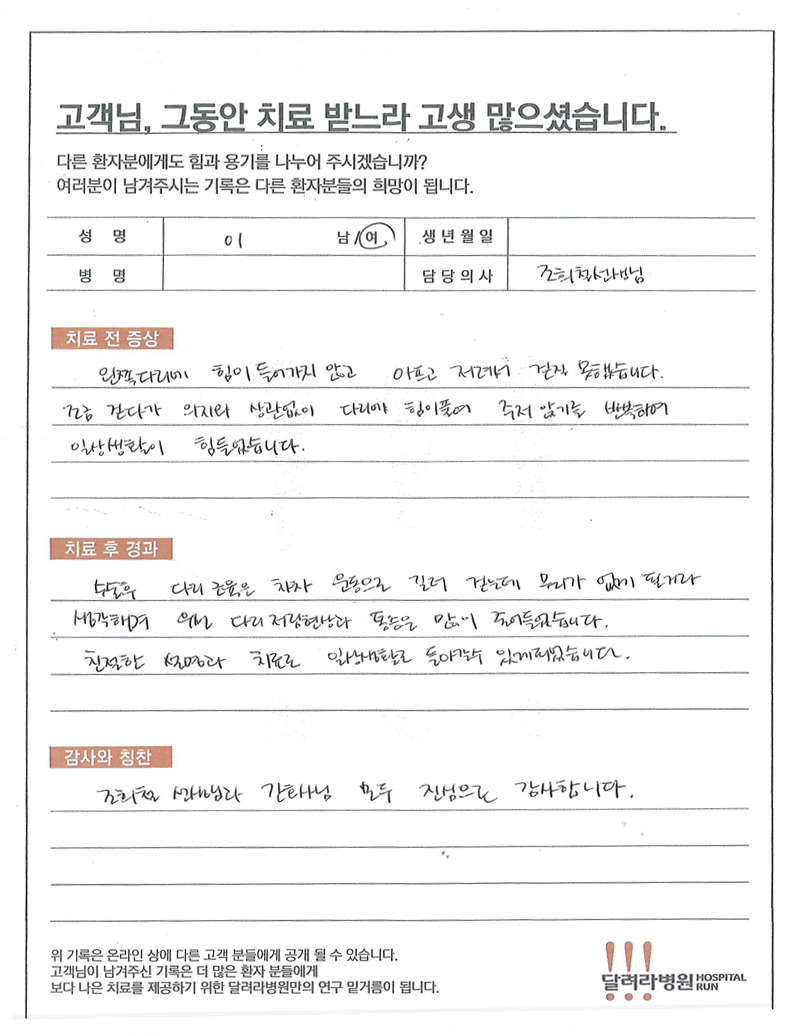 고객님, 그동안 치료 받느라 고생 많으셨습니다.
다른 환자분에게도 힘과 용기를 나누어 주시겠습니까?
여러분이 남겨주시는 기록은 다른 환자분들의 희망이 됩니다.
성 명 이 남/여 생년월일
병 명 담당의사 조희철선생님
치료 전 증상
왼쪽다리에 힘이 들어가지 않고 아프고 저려서 걷질 못했습니다.
조금 걷다가 의지와 상관없이 다리에 힘이풀려 주저 앉기를 반복하며
일상생활이 힘들었습니다.
치료 후 경과
수술후 다리 근육은 차차 운동으로 길러 걷는데 무리가 없게 될거라
생각하며 우선 다리 저림현상과 통증은 많이 줄어들었습니다.
친절한 설명과 치료로 일상생활로 돌아갈수 있게되었습니다.
감사와 칭찬
조희철 선생님과 간호사님 모두 진심으로 감사합니다.
위 기록은 온라인 상에 다른 고객 분들에게 공개 될 수 있습니다.
고객님이 남겨주신 기록은 더 많은 환자 분들에게
보다 나은 치료를 제공하기 위한 달려라병원만의 연구 밑거름이 됩니다.
달려라병원 HOSPITAL RUN